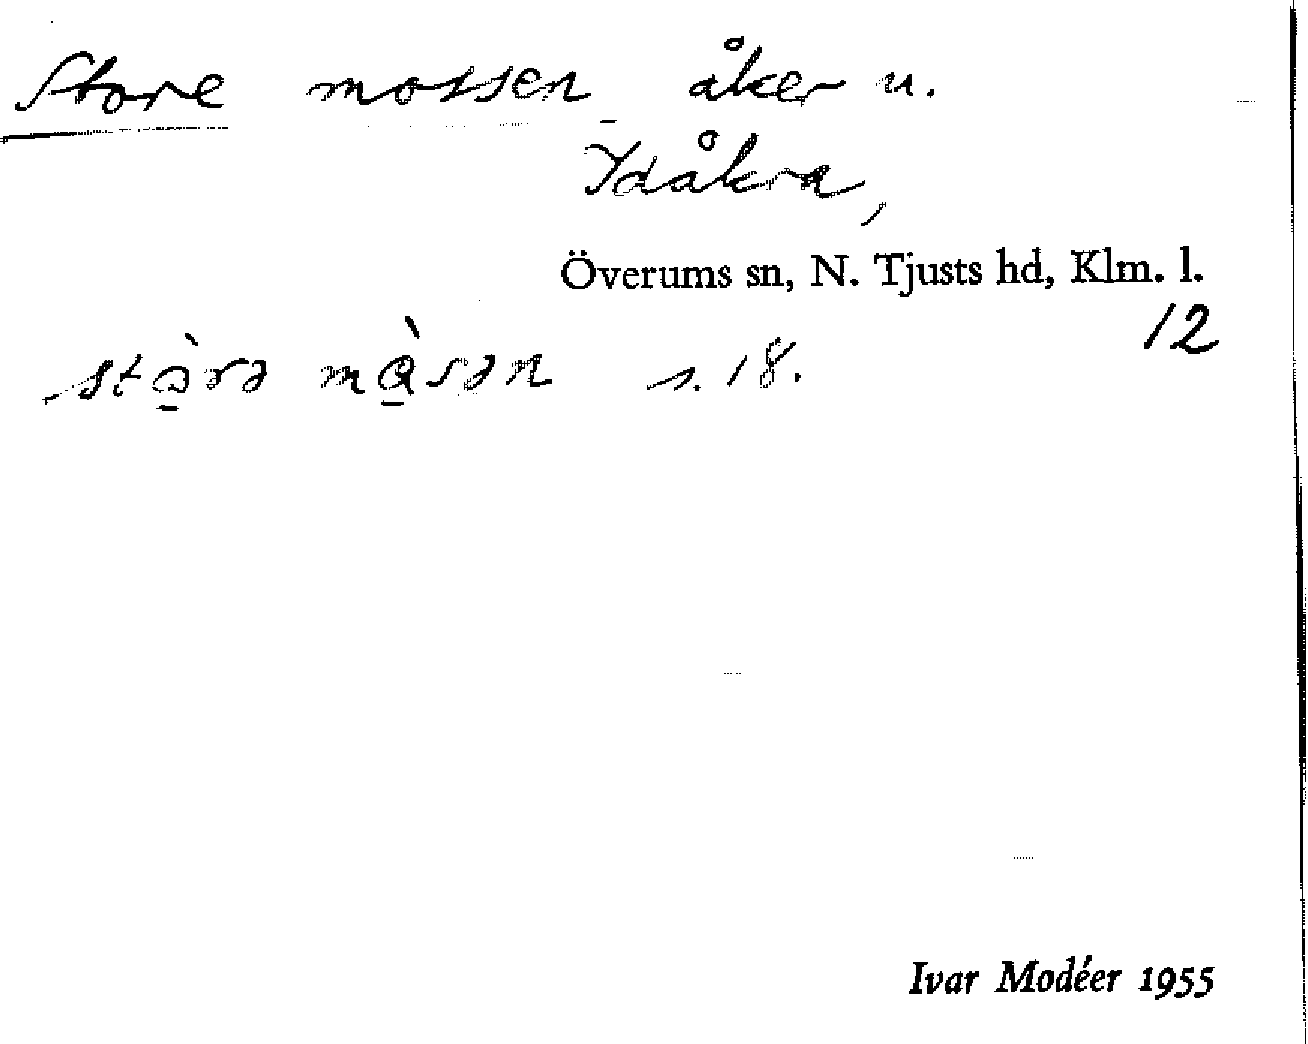 Store mossen åker u.
Idåkra,
Överums sn, N. Tjusts hd, Klm. l.
12
stɔ̠̀rə mɑ̠̀sən s. 18.
Ivar Modéer 1955